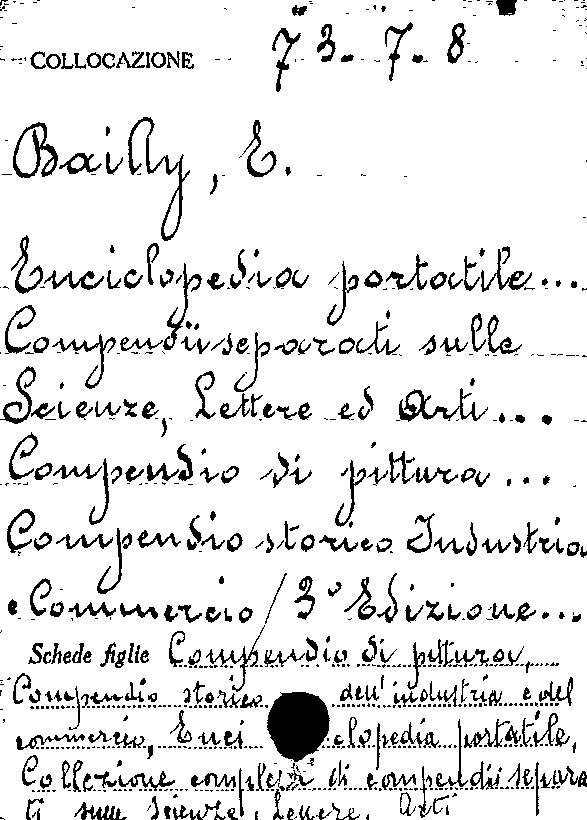 COLLOCAZIONE 73-7-8
Bailly, E.
Enciclopedia portatile...
Compendii separati sulle
Scienze, Lettere ed Arti...
Compendio di pittura...
Compendio storico Industria
e Commercio / 3º Edizione...
Schede figlie Compendio di pittura,
Compendio storico dell'industria e del
commercio, Enciclopedia portatile,
Collezione completa di compendii separa
ti sulle scienze, Lettere, Arti